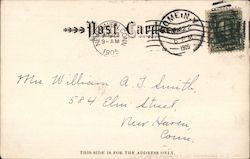 Post Card
9-AM
1905
ROME, N.Y.
1905
Mrs. William A. T. Smith,
584 Elm Street,
New Haven,
Conn.
THIS SIDE IS FOR THE ADDRESS ONLY.